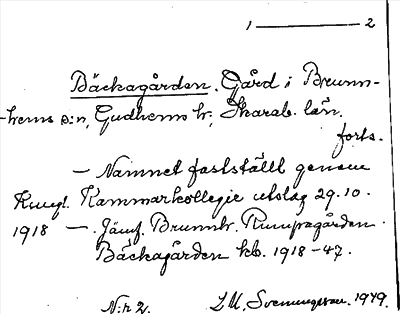 1 — 2
Bäckagården. Gård i Brunn-
hems s:n, Gudhems hr, Skarab. län.
forts.
— Namnet fastställt genom
Kungl. Kammarkollegie utslag 29.10.
1918 —. Jämf. Brunnh. Rumpegården.
Bäckagården kb. 1918-47.
N:r 2. Svenungsson. 1949.